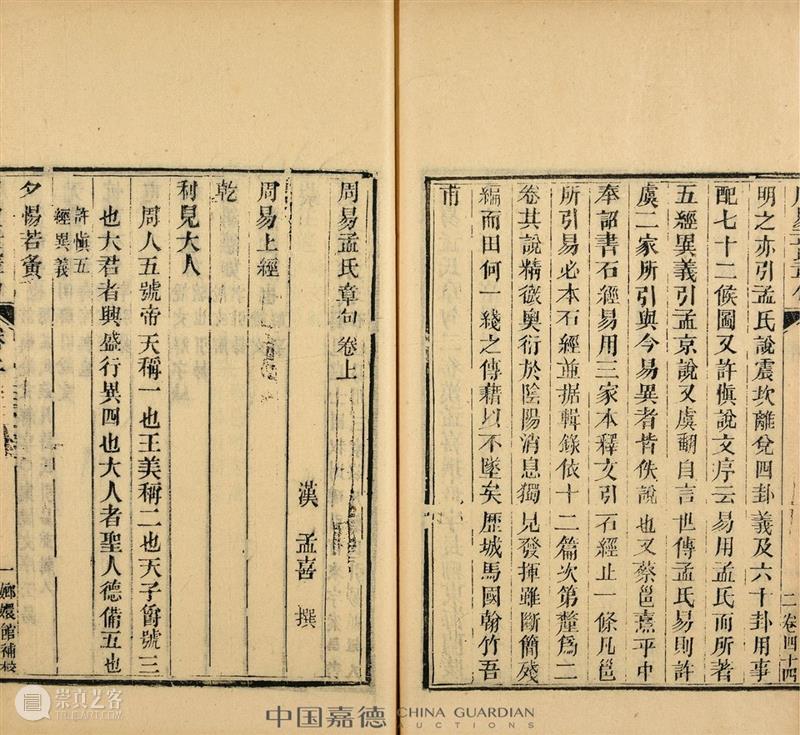 二 卷四十四
明之亦引孟氏說震坎離兌四卦義及六十卦用事
配七十二候圖又許愼說文序云易用孟氏而所著
五經異義引孟京說又虞翻自言世傳孟氏易則許
虞二家所引與今易異者皆佚說也又蔡邕熹平中
奉詔書石經易用三家本釋文引石經止一條凡邕
所引易必本石經並据輯錄依十二篇次第釐爲二
卷其說精微奧衍於陰陽消息獨見發揮雖斷簡殘
編而田何一綫之傳藉以不墜矣歷城馬國翰竹吾
甫
周易孟氏章句卷上
漢 孟喜 撰
周易上經
乾
利見大人
周人五號帝天稱一也王美稱二也天子爵號三
也大君者興盛行異四也大人者聖人德備五也
許愼五
經異義
夕惕若夤
一 嫏嬛館補校
崇真艺客
中国嘉德 CHINA GUARDIAN
AUCTIONS